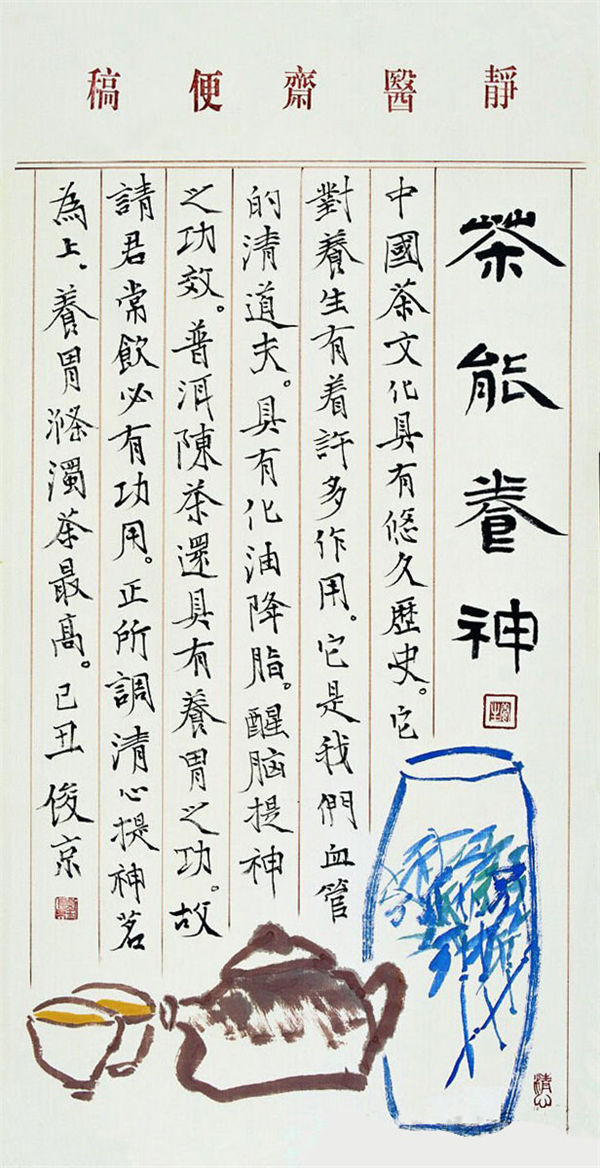 靜醫齋便稿
茶能養神
中國茶文化具有悠久歷史。它
對養生有着許多作用。它是我們血管
的清道夫。具有化油降脂。醒脑提神
之功效。普洱陳茶還具有養胃之功。故
請君常飲必有功用。正所調清心提神茗
為上、養胃滌濁茶最高。己丑俊京